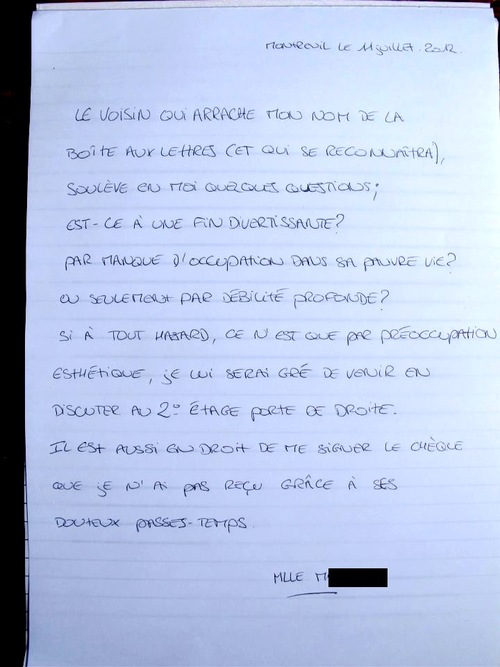 MONTREUIL LE 11 JUILLET. 2012.
LE VOISIN QUI ARRACHE MON NOM DE LA
BOÎTE AUX LETTRES (ET QUI SE RECONNAÎTRA),
SOULÈVE EN MOI QUELQUES QUESTIONS;
EST-CE À UNE FIN DIVERTISSANTE?
PAR MANQUE D'OCCUPATION DANS SA PAUVRE VIE?
OU SEULEMENT PAR DÉBILITÉ PROFONDE?
SI À TOUT HASARD, CE N'EST QUE PAR PRÉOCCUPATION
ESTHÉTIQUE, JE LUI SERAI GRÉ DE VENIR EN
DISCUTER AU 2º ÉTAGE PORTE DE DROITE.
IL EST AUSSI EN DROIT DE ME SIGNER LE CHÈQUE
QUE JE N'AI PAS REÇU GRÂCE À SES
DOUTEUX PASSES-TEMPS.
MLLE M